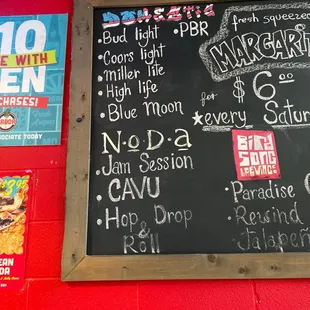 10
E WITH
EN
CHASES!
OCIATE TODAY
DOMESTIC
• Bud light
• PBR
• Coors light
• Miller lite
• High life
• Blue Moon
fresh squeezed
MARGARIT
for $6.00
★ every Satur
N•O•D•A
• Jam Session
• CAVU
• Hop, Drop
& Roll
BIRD
SONG
BREWING CO
• Paradise
• Rewind
• Jalapeñ
EAN
DA